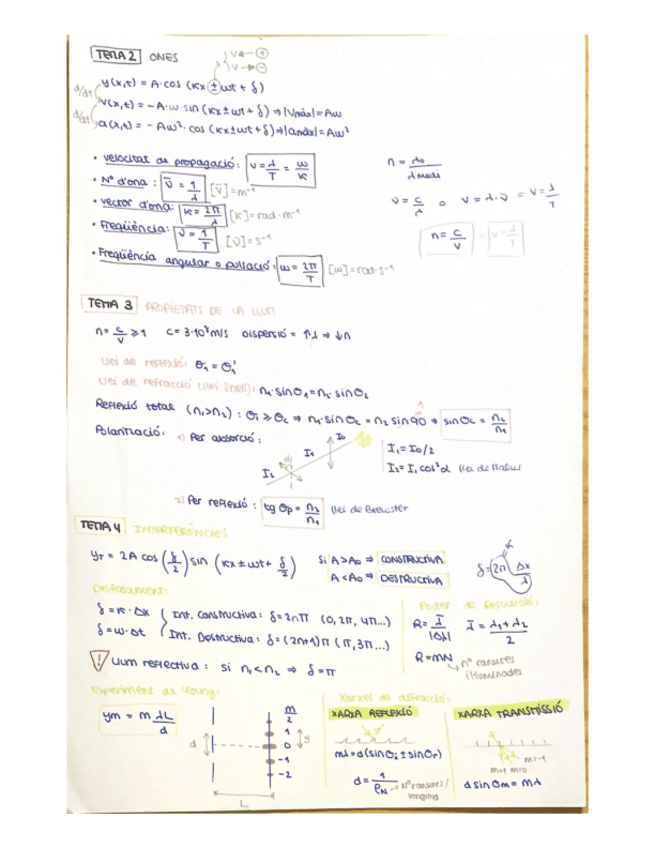 TEMA 2 ONES
V ← +
V → −
d/dt
y(x,t) = A·cos (kx ± ωt + δ)
d/dt
v(x,t) = −A·ω·sin (kx ± ωt + δ) ⇒ |Vmàx| = Aω
a(x,t) = −Aω²·cos (kx ± ωt + δ) ⇒ |amàx| = Aω²
• velocitat de propagació: v = λ/T = ω/k
n = λ₀/λmedi
• Nº d'ona: ν̄ = 1/λ [ν̄] = m⁻¹
ν = c/λ o v = λ·ν = v = λ/T
• vector d'ona: k = 2π/λ [k] = rad·m⁻¹
• Freqüència: ν = 1/T [ν] = s⁻¹
n = c/v = v = λ/T
• Freqüència angular o pulsació: ω = 2π/T [ω] = rad·s⁻¹
TEMA 3 PROPIETATS DE LA LLUM
n = c/v ⩾ 1 c = 3·10⁸ m/s DISPERSIÓ = ↑λ ⇒ ↓n
Llei de reflexió: θ₁ = θ₁'
Llei de refracció (llei Snell): n₁·sinθ₁ = n₂·sinθ₂
Reflexió total (n₁>n₂): θi ⩾ θc ⇒ n₁·sinθc = n₂ sin90 ⇒ sinθc = n₂/n₁
1
Polarització: 1) Per absorció:
I₀
I₁
α
I₂
I₁ = I₀/2
I₂ = I₁ cos²α llei de Malus
2) Per reflexió: tg θp = n₂/n₁ llei de Brewster
TEMA 4 INTERFERÈNCIES
yT = 2A cos (δ/2) sin (kx ± ωt + δ/2)
Si A > A₀ ⇒ CONSTRUCTIVA
A < A₀ ⇒ DESTRUCTIVA
k
δ = 2π Δx/λ
Desfasament:
δ = k·Δx Int. Constructiva: δ = 2nπ (0, 2π, 4π...)
δ = ω·Δt Int. Destructiva: δ = (2n+1)π (π, 3π...)
! Llum reflectiva: si n₁ < n₂ ⇒ δ = π
Poder de resolució:
R = λ̄/|Δλ| λ̄ = λ₁+λ₂/2
R = mN
nº ranures il·luminades
Experiment de Young:
ym = m λL/d
d
m
2
1
0
−1
−2
y
L
Xarxes de difracció:
XARXA REFLEXIÓ
mλ = d(sinθi ± sinθr)
d = 1/ρN
Nº ranures/longitud
XARXA TRANSMISSIÓ
m=−1
m=1 m=0
d sinθm = mλ